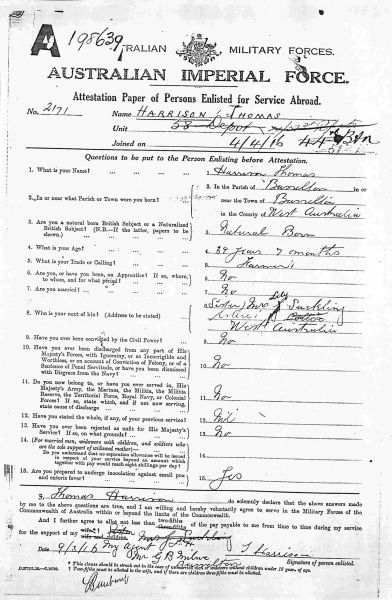 A 198639
AUSTRALIAN MILITARY FORCES.
AUSTRALIAN IMPERIAL FORCE.
Attestation Paper of Persons Enlisted for Service Abroad.
No. 2171 Name HARRISON THOMAS
Unit 58 Depot
Joined on 4/4/16 44 Btn
Questions to be put to the Person Enlisting before Attestation.
1. What is your Name? 1. Harrison Thomas
2. In or near what Parish or Town were you born? 2. In the Parish of Busselton in or
near the Town of Busselton
in the County of West Australia
3. Are you a natural born British Subject or a Naturalized
British Subject? (N.B.—If the latter, papers to be
shown). 3. Natural Born
4. What is your Age? 4. 39 years 7 months
5. What is your Trade or Calling? 5. Farmer
6. Are you, or have you been, an Apprentice? If so, where,
to whom, and for what period? 6. No
7. Are you married? 7. No
8. Who is your next of kin? (Address to be stated) 8. (Sister) Mrs Lily Suckling
West Australia
9. Have you ever been convicted by the Civil Power? 9. No
10. Have you ever been discharged from any part of His
Majesty's Forces, with Ignominy, or as Incorrigible and
Worthless, or on account of Conviction of Felony, or of a
Sentence of Penal Servitude, or have you been dismissed
with Disgrace from the Navy? 10. No
11. Do you now belong to, or have you ever served in, His
Majesty's Army, the Marines, the Militia, the Militia
Reserve, the Territorial Force, Royal Navy, or Colonial
Forces? If so, state which, and if not now serving,
state cause of discharge 11. No
12. Have you stated the whole, if any, of your previous service? 12. Nil
13. Have you ever been rejected as unfit for His Majesty's
Service? If so, on what grounds? 13. No
14. (For married men, widowers with children, and soldiers who
are the sole support of widowed mother)—
Do you understand that no separation allowance will be issued
in respect of your service beyond an amount which
together with pay would reach eight shillings per day? 14.
15. Are you prepared to undergo inoculation against small pox
and enteric fever? 15. Yes
I, Thomas Harrison do solemnly declare that the above answers made
by me to the above questions are true, and I am willing and hereby voluntarily agree to serve in the Military Forces of the
Commonwealth of Australia within or beyond the limits of the Commonwealth.
And I further agree to allot not less than two-fifths
three-fifths of the pay payable to me from time to time during my service
for the support of my wife
wife and children. Mrs Suckling
Date 9/3/16 My agent Mr G B Milne T Harrison
Busselton Signature of person enlisted.
* This clause should be struck out in the case of unmarried men or widowers without children under 18 years of age.
Two-fifths must be allotted to the wife, and if there are children three-fifths must be allotted.
Bunbury